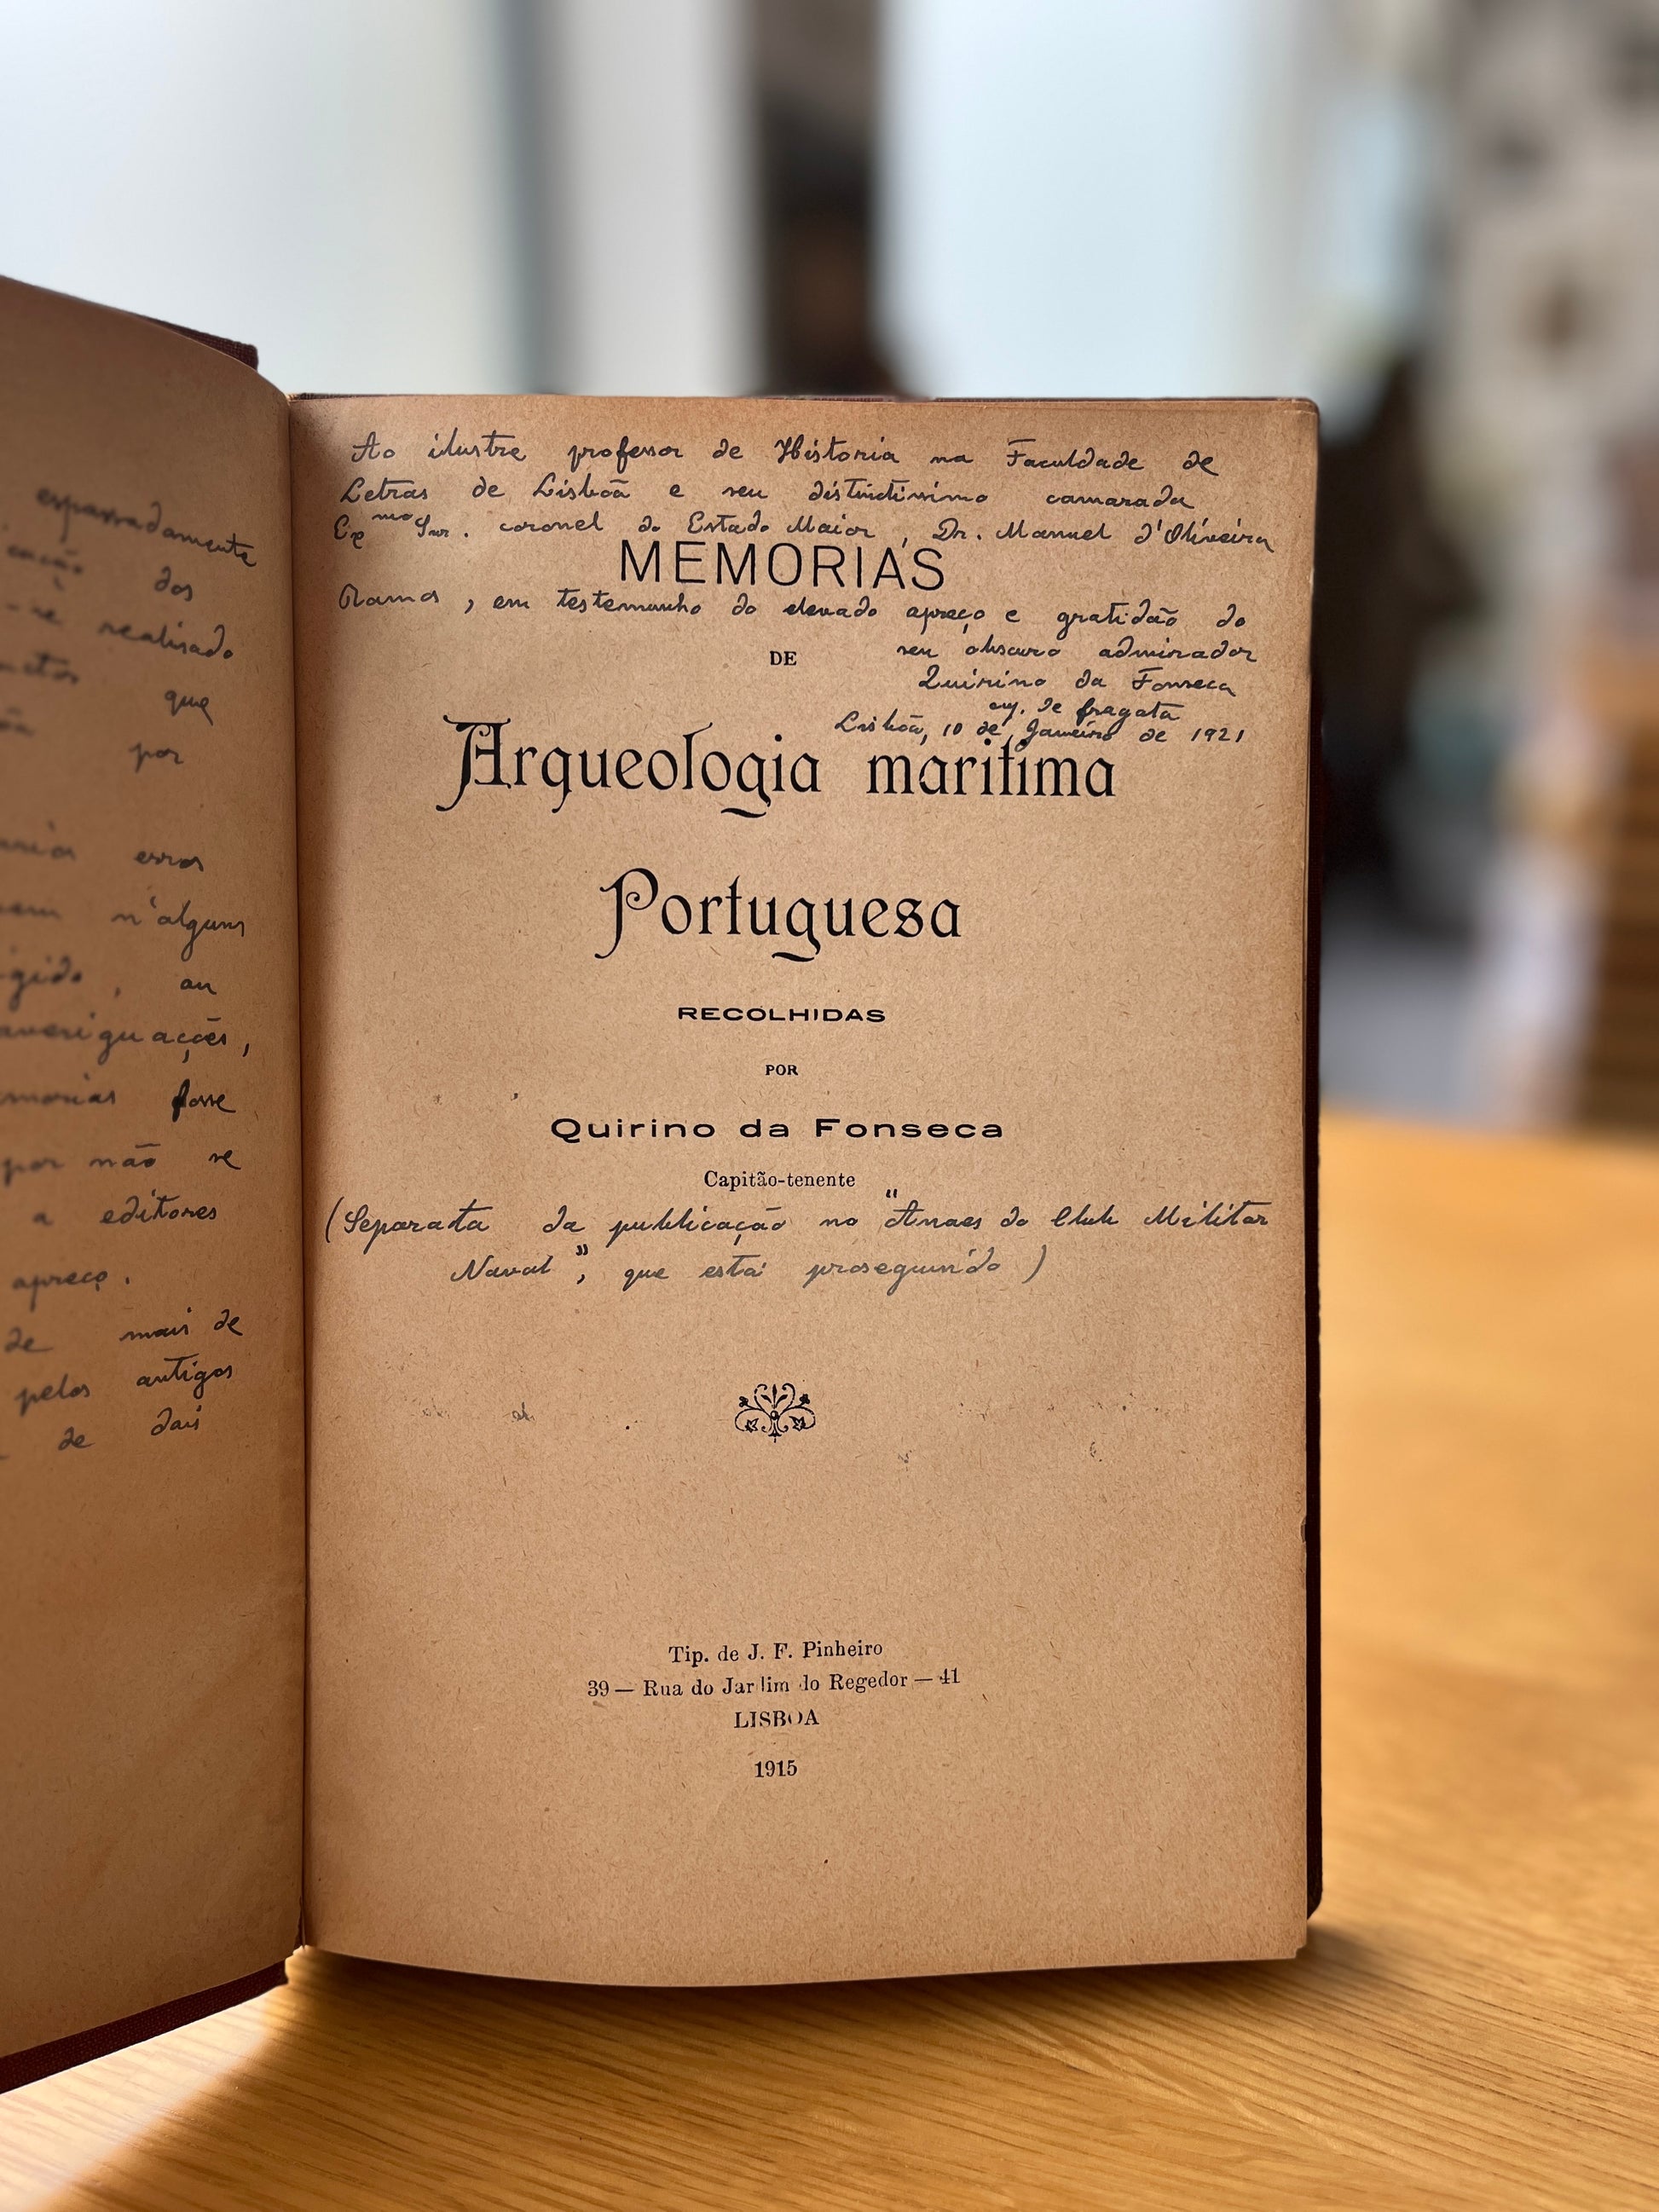 espassadamente
dos
realisado
que
por
erros
n'alguns
ou
averiguações,
fosse
por não se
a editores
apreço.
de mais de
pelos antigos
de dois
Ao ilustre professor de Historia na Faculdade de
Letras de Lisbôa e seu distintissimo camarada
Exmo Snr. coronel do Estado Maior, Dr. Manuel d'Oliveira
MEMORIAS
Ramos, em testemunho do elevado apreço e gratidão do
seu obscuro admirador
DE
Quirino da Fonseca
de fragata
Lisbôa, 10 de Janeiro de 1921
Arqueologia maritima
Portuguesa
RECOLHIDAS
POR
Quirino da Fonseca
Capitão-tenente
(Separata da publicação no "Anaes do Club Militar
Naval", que está proseguindo)
Tip. de J. F. Pinheiro
39 — Rua do Jardim do Regedor — 41
LISBOA
1915